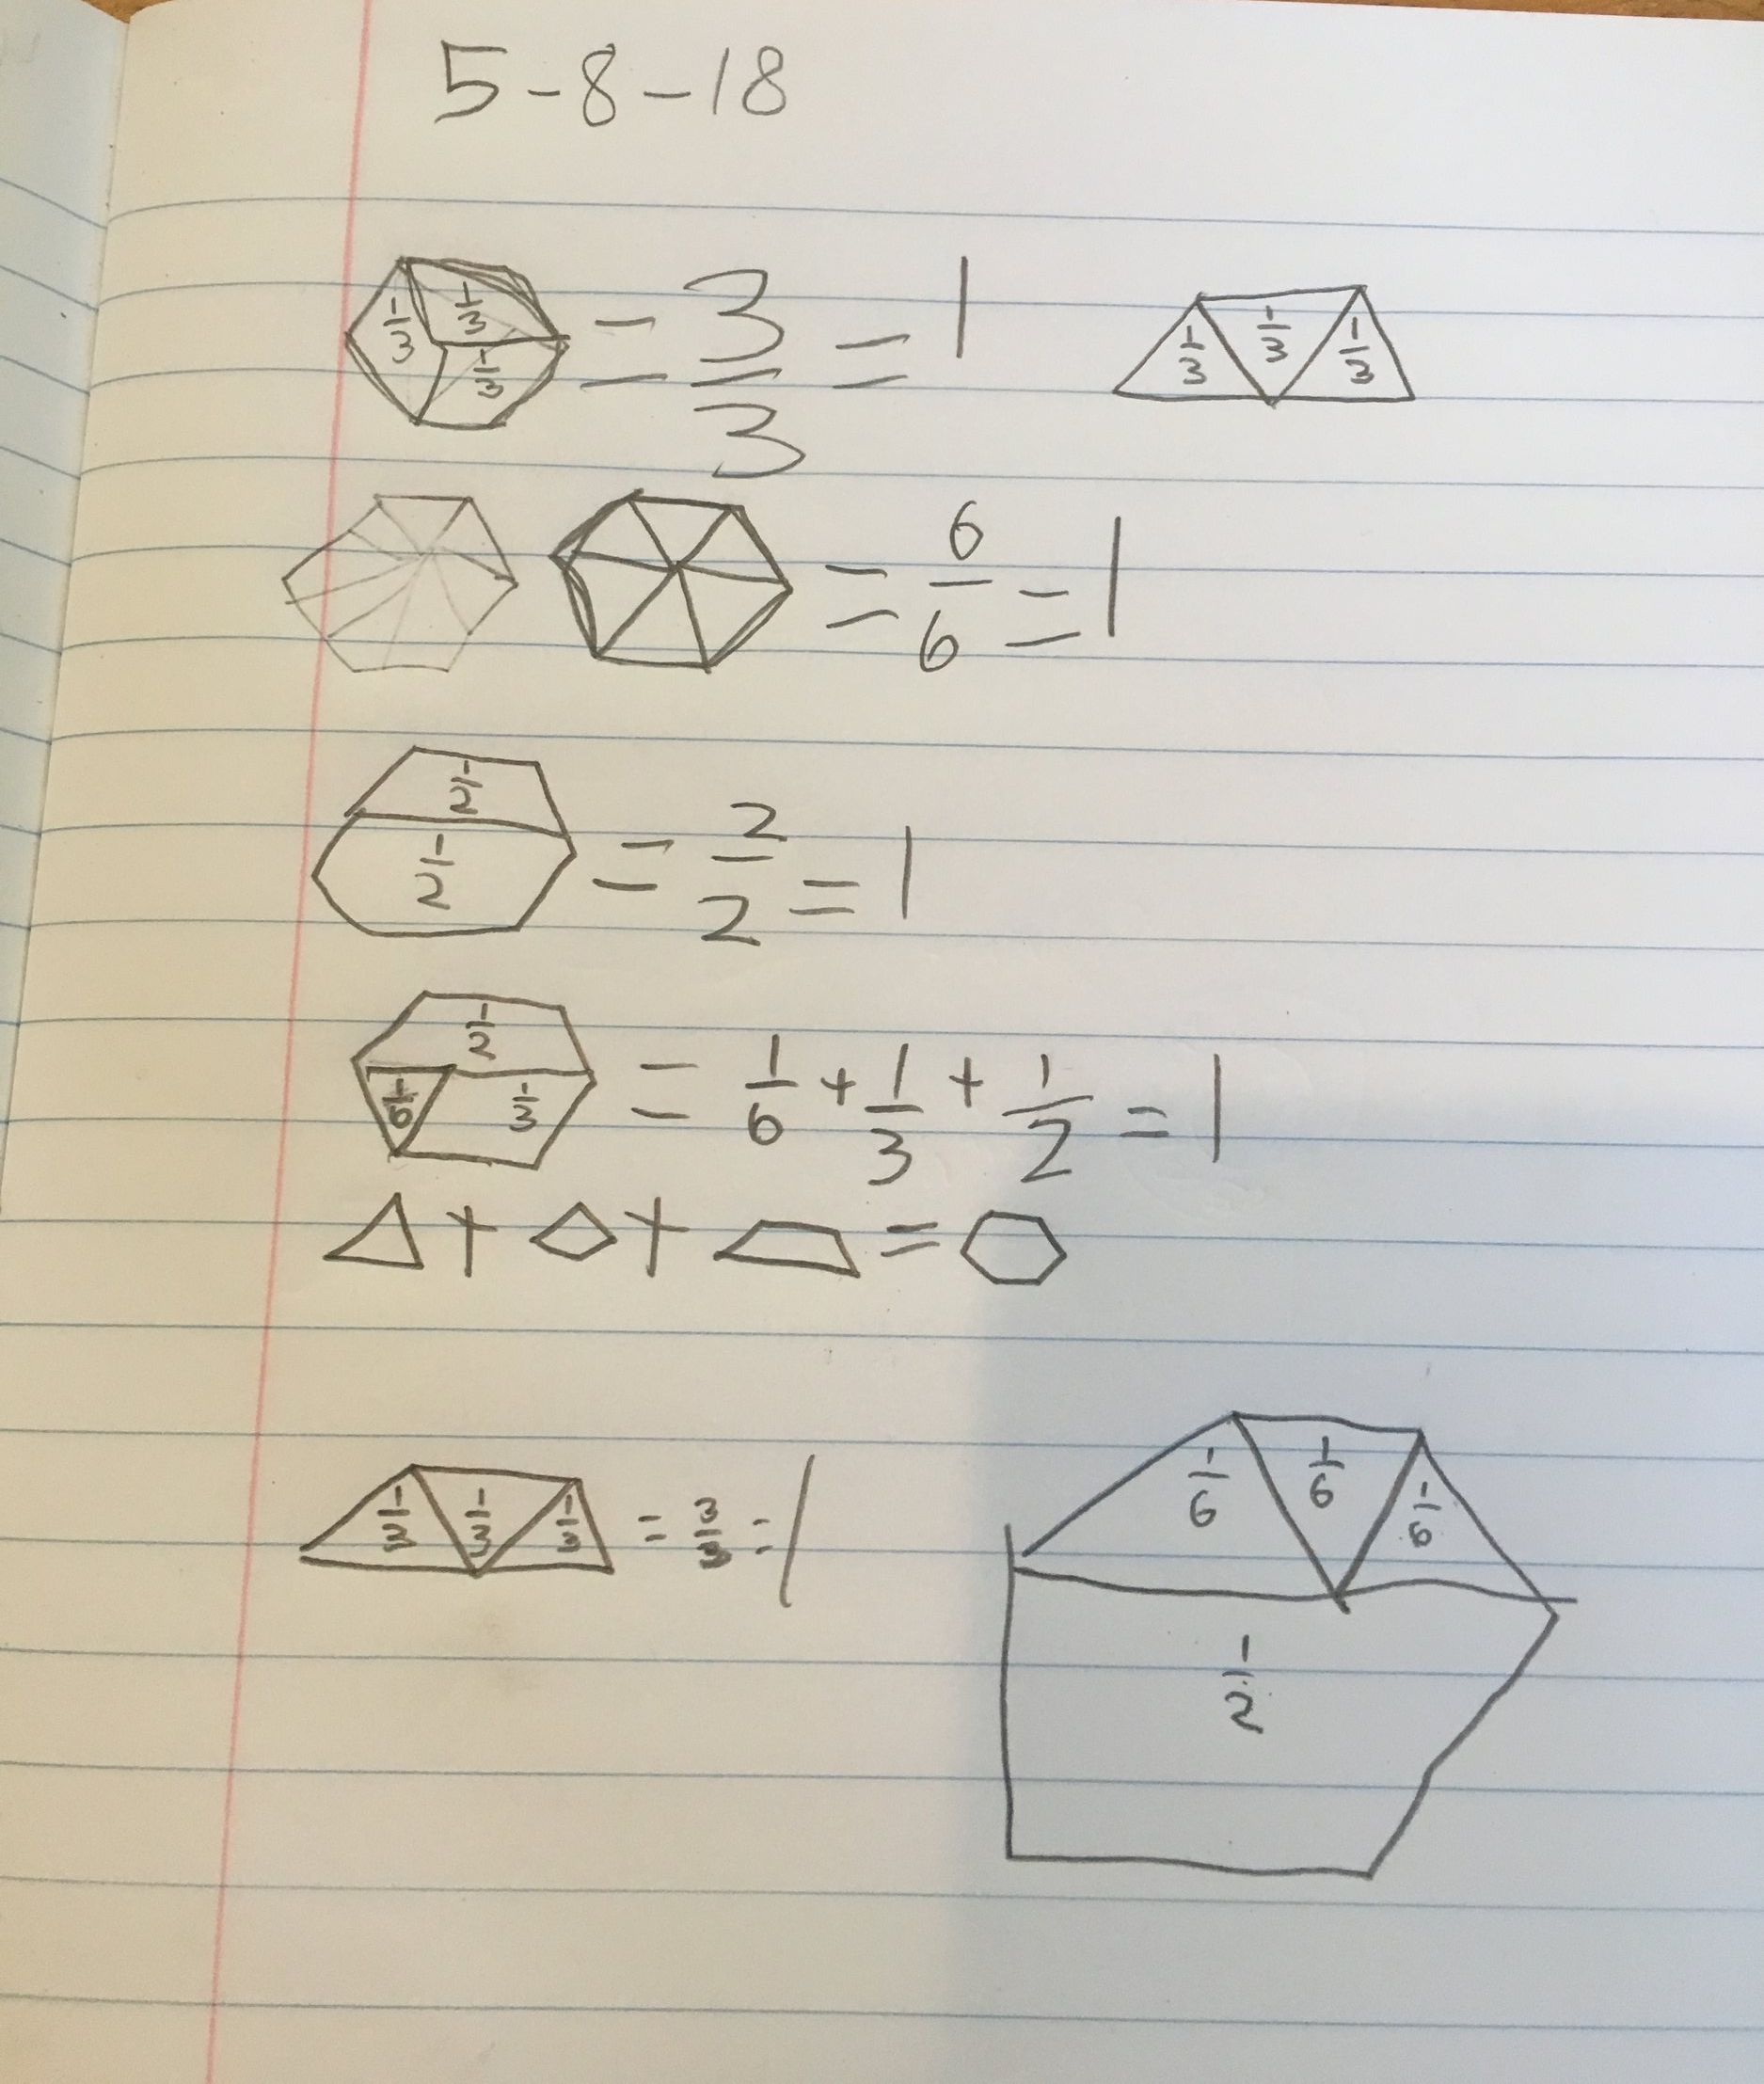 5-8-18
1/3 1/3 1/3 = 3/3 = 1
1/3 1/3 1/3
= 6/6 = 1
1/2 1/2 = 2/2 = 1
1/2 1/6 1/3 = 1/6 + 1/3 + 1/2 = 1
+ + =
1/3 1/3 1/3 = 3/3 = 1
1/6 1/6 1/6
1/2